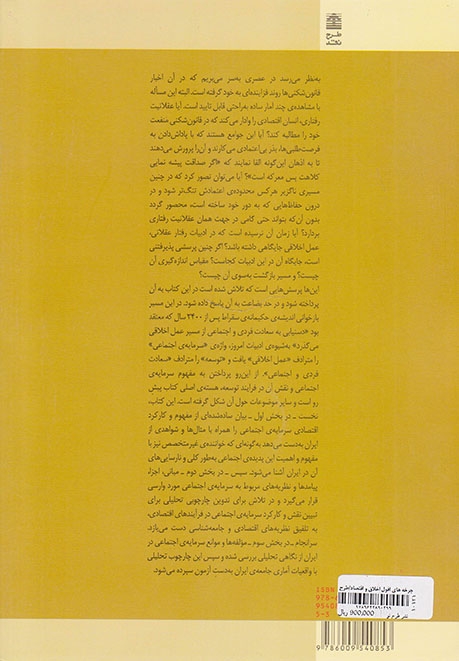 طرح نقد
به‌نظر می‌رسد در عصری به‌سر می‌بریم که در آن اخبار
قانون‌شکنی‌ها روند فزاینده‌ای به خود گرفته است. البته این مسأله
با مشاهده‌ی چند آمار ساده به‌راحتی قابل تایید است. آیا عقلانیت
رفتاری، انسان اقتصادی را وادار می‌کند که در قانون‌شکنی منفعت
خود را مطالبه کند؟ آیا این جوامع هستند که با پاداش‌دادن به
فرصت‌طلبی‌ها، بذر بی‌اعتمادی می‌کارند و آن‌را پرورش می‌دهند
تا به اذهان این‌گونه القا نمایند که «اگر صداقت پیشه نمایی
کلاهت پس معرکه است»؟ آیا می‌توان تصور کرد که در چنین
مسیری ناگزیر هرکس محدوده‌ی اعتمادش تنگ‌تر شود و در
درون حفاظ‌هایی که به دور خود ساخته است، محصور گردد
بدون آن‌که بتواند حتی گامی در جهت همان عقلانیت رفتاری
بردارد؟ آیا زمان آن نرسیده است که در ادبیات رفتار عقلانی،
عمل اخلاقی جایگاهی داشته باشد؟ اگر چنین پرسشی پذیرفتنی
است، جایگاه آن در این ادبیات کجاست؟ مقیاس اندازه‌گیری آن
چیست؟ و مسیر بازگشت به‌سوی آن چیست؟
این‌ها پرسش‌هایی است که تلاش شده است در این کتاب به آن
پرداخته شود و در حد بضاعت به آن پاسخ داده شود. در این مسیر
بازخوانی اندیشه‌ی حکیمانه‌ی سقراط پس از ۲۴۰۰ سال که معتقد
بود «دستیابی به سعادت فردی و اجتماعی از مسیر عمل اخلاقی
می‌گذرد» به‌شیوه‌ی ادبیات امروز، واژه‌ی «سرمایه‌ی اجتماعی»
را مترادف «عمل اخلاقی» یافت و «توسعه» را مترادف «سعادت
فردی و اجتماعی». از این‌رو پرداختن به مفهوم سرمایه‌ی
اجتماعی و نقش آن در فرآیند توسعه، هسته‌ی اصلی کتاب پیش
رو است و سایر موضوعات حول آن شکل گرفته است. این کتاب،
نخست ـ در بخش اول ـ بیان ساده‌شده‌ای از مفهوم و کارکرد
اقتصادی سرمایه‌ی اجتماعی را همراه با مثال‌ها و شواهدی از
ایران به‌دست می‌دهد به‌گونه‌ای که خواننده‌ی غیرمتخصص نیز با
مفهوم و اهمیت این پدیده‌ی اجتماعی به‌طور کلی و نارسایی‌های
آن در ایران آشنا می‌شود. سپس ـ در بخش دوم ـ مبانی، اجزا،
پیامدها و نظریه‌های مربوط به سرمایه‌ی اجتماعی مورد وارسی
قرار می‌گیرد و در تلاش برای تدوین چارچوبی تحلیلی برای
تبیین نقش و کارکرد سرمایه‌ی اجتماعی در فرآیندهای اقتصادی،
به تلفیق نظریه‌های اقتصادی و جامعه‌شناسی دست می‌یازد.
سرانجام ـ در بخش سوم ـ مؤلفه‌ها و موانع سرمایه‌ی اجتماعی در
ایران از نگاهی تحلیلی بررسی شده و سپس این چارچوب تحلیلی
با واقعیات آماری جامعه‌ی ایران به‌دست آزمون سپرده می‌شود.
ISBN
978-6
95408
5-3
چرخه های افول اخلاق و اقتصاد/طرح
900,000 ریال
9786009540853